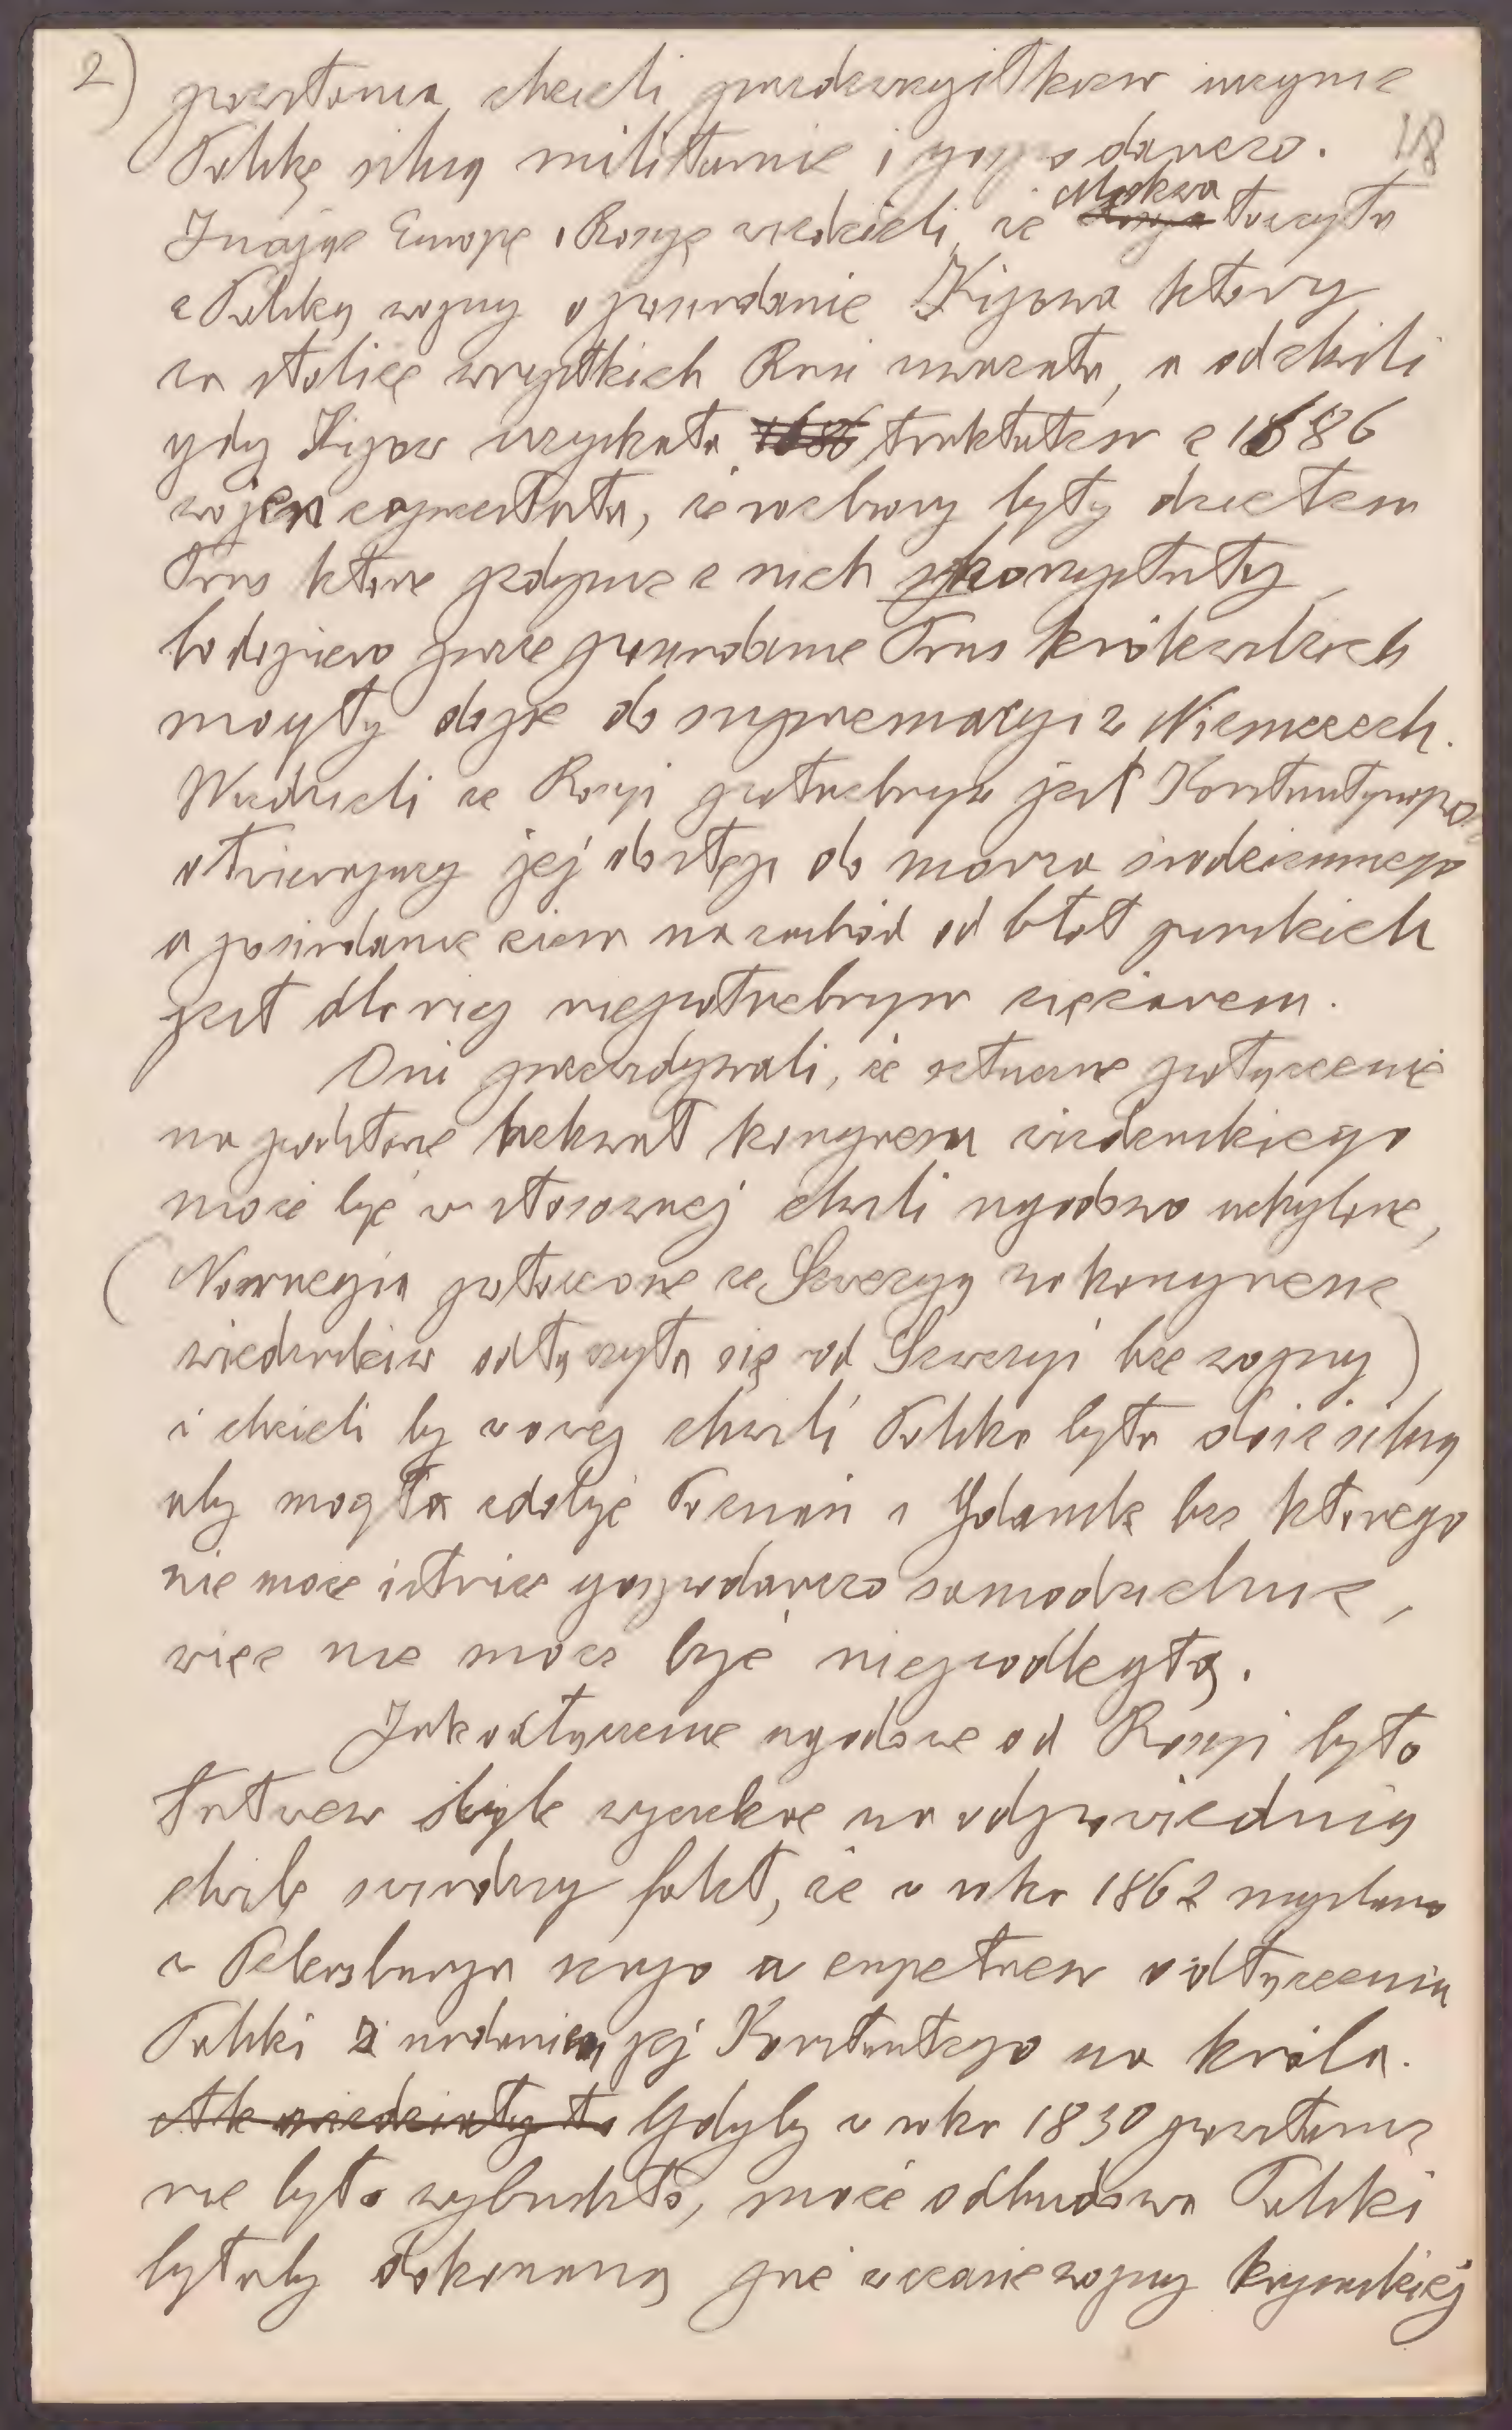 2)
18
powstania, chcieli przedewszystkiem uczynić
Polskę silną militarnie i gospodarczo.
Znając Europę i Rosyę wiedzieli, że Moskwa ~~Rosya~~ toczyła
z Polską wojny o posiadanie Kijowa który
za stolicę wszystkich Rusi uważała, a od chwili
gdy Kijów uzyskała ~~1686~~ traktatem z 1686
wojen zaprzestała, że rozbiory były dziełem
Prus które jedynie z nich skorzystały,
bo dopiero przez posiadanie Prus królewskich
mogły dojść do supremacyi w Niemczech.
Wiedzieli że Rosyi potrzebnym jest Konstantynopol
otwierający jej dostęp do morza śródziemnego
a posiadanie ziem na zachód od błot pińskich
jest dla niej niepotrzebnym ciężarem.
Oni przewidywali, że sztuczne połączenie
na podstawie uchwał kongresu wiedeńskiego
może być w stosownej chwili ugodowo uchylone,
(Norwegia połączona ze Szwecyą na kongresie
wiedeńskim odłączyła się od Szwecyi bez wojny)
i chcieli by w owej chwili Polska była dość silną
aby mogła zdobyć Poznań i Gdańsk bez którego
nie może istnieć gospodarczo samodzielnie,
więc nie może być niepodległą.
Jak odłączenie ugodowe od Rosyi było
łatwem byle wyczekać na odpowiednią
chwilę świadczy fakt, że w roku 1862 myślano
w Petersburgu seryo a zupełnem odłączeniu
Polski i nadaniem jej Konstantego na króla.
~~Ale wiedziały to~~ Gdyby w roku 1830 powstanie
nie było wybuchło, może odbudowa Polski
byłaby dokonaną już w czasie wojny krymskiej